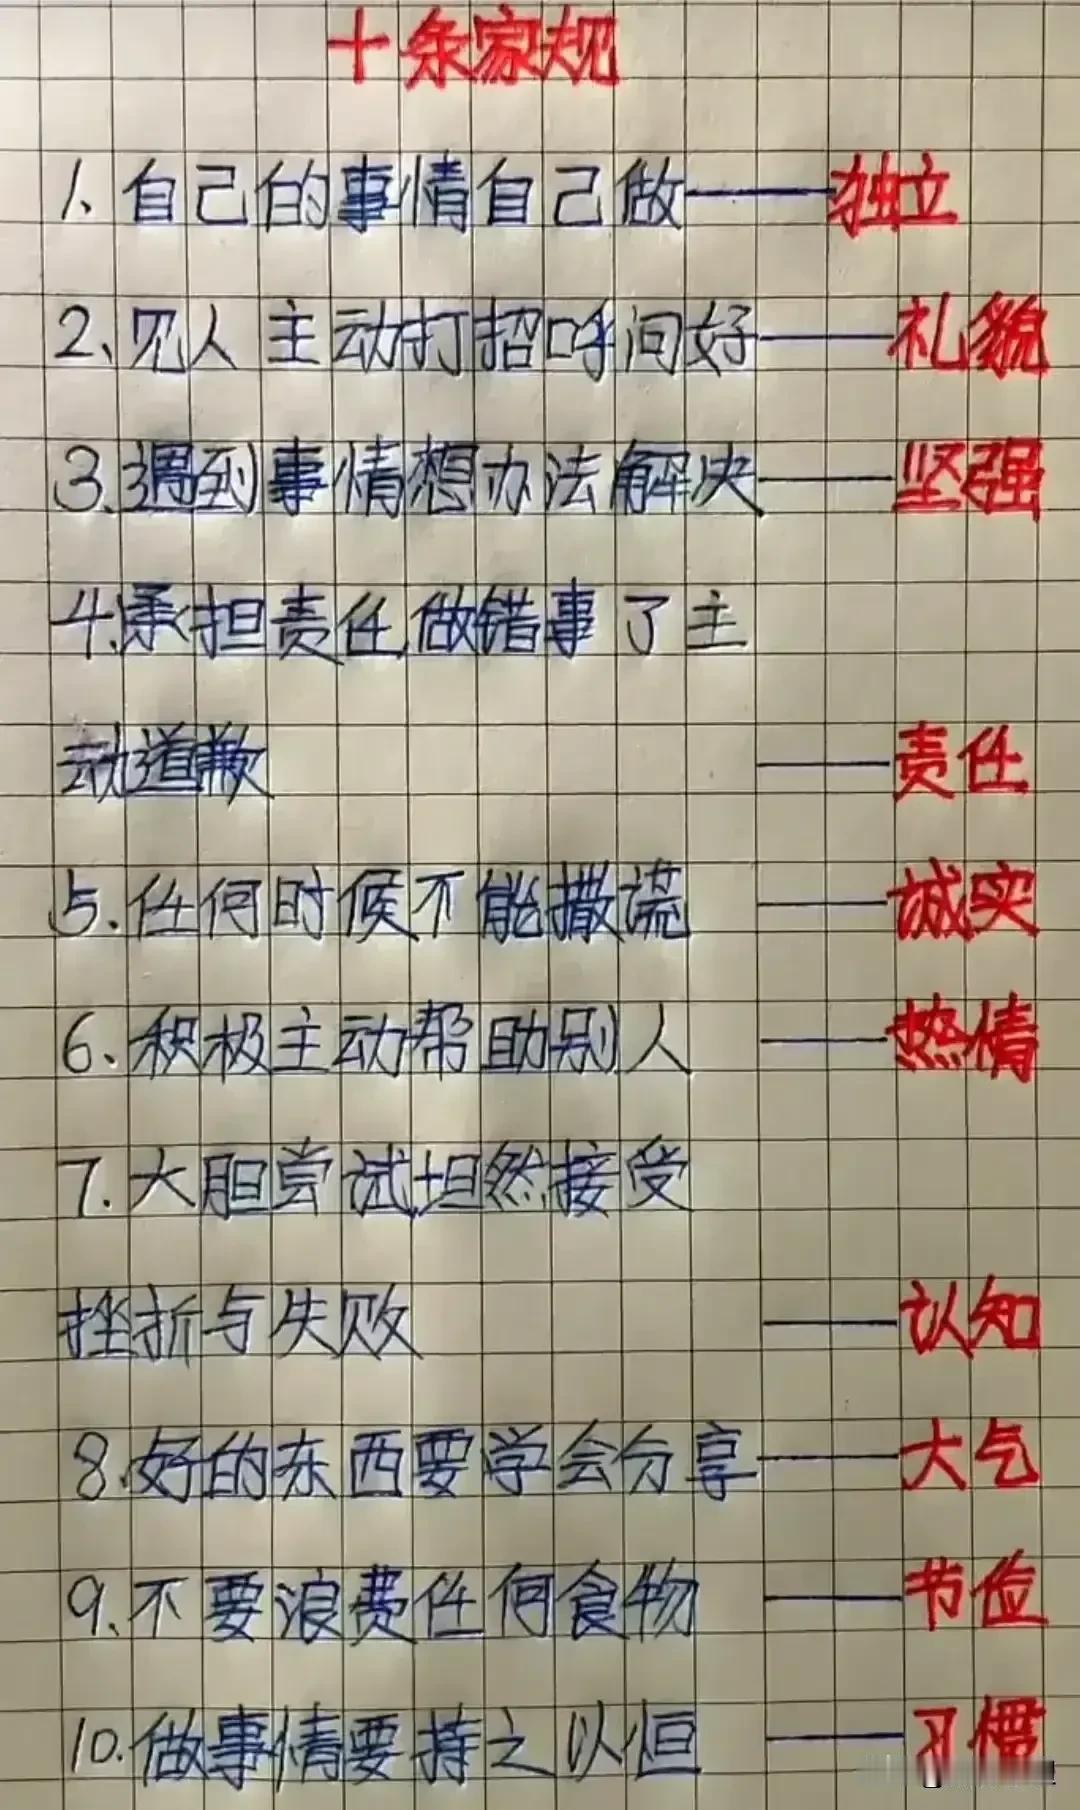 十条家规
1、自己的事情自己做——独立
2、见人主动打招呼问好——礼貌
3、遇到事情想办法解决——坚强
4.承担责任,做错事了主
动道歉——责任
5.任何时候不能撒谎——诚实
6、积极主动帮助别人——热情
7.大胆尝试,坦然接受
挫折与失败——认知
8.好的东西要学会分享——大气
9、不要浪费任何食物——节俭
10.做事情要持之以恒——习惯